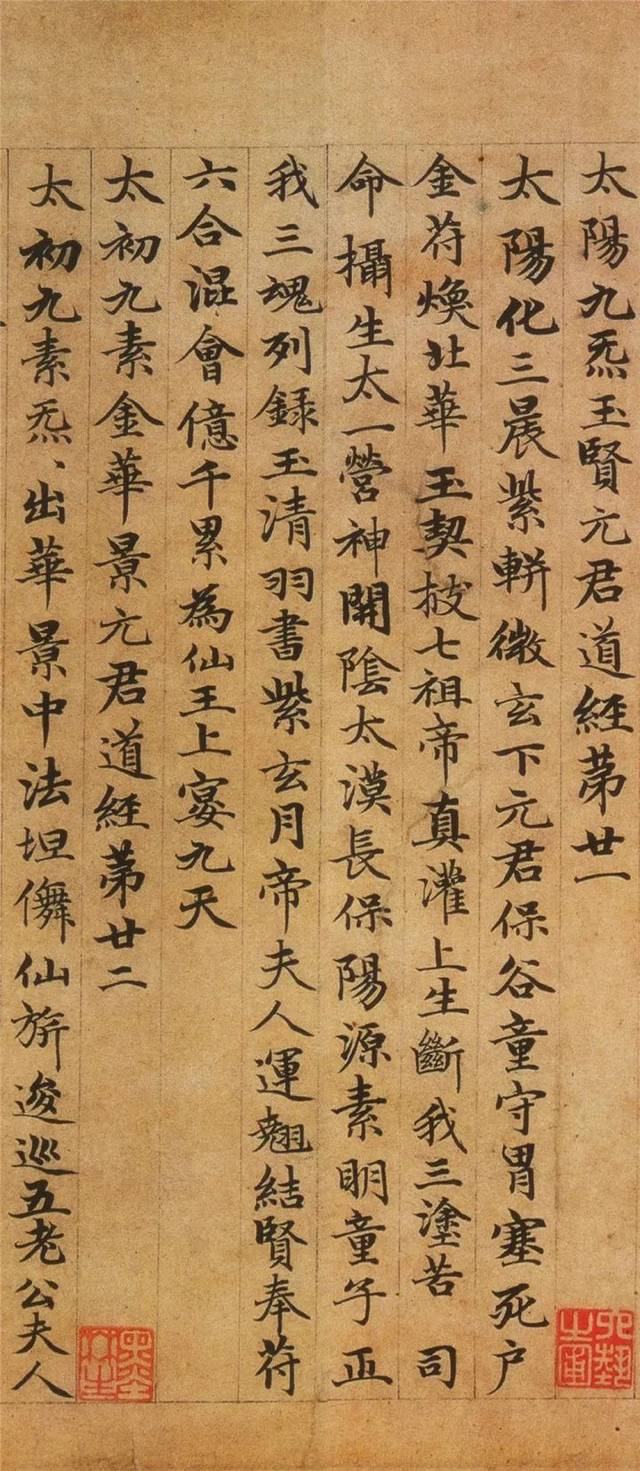 太陽九炁玉賢元君道經第廿一
太陽化三晨紫軿微玄下元君保谷童守胃塞死户
金苻煥北華玉契校七祖帝真灌上生斷我三塗苦司
命攝生太一營神開陰太漠長保陽源素明童子正
我三魂列錄玉清羽書紫玄月帝夫人運翹結賢奉苻
六合混會億千累為仙王上宴九天
太初九素金華景元君道經第廿二
太初九素炁、出華景中法坦儛仙旂逡巡五老公夫人